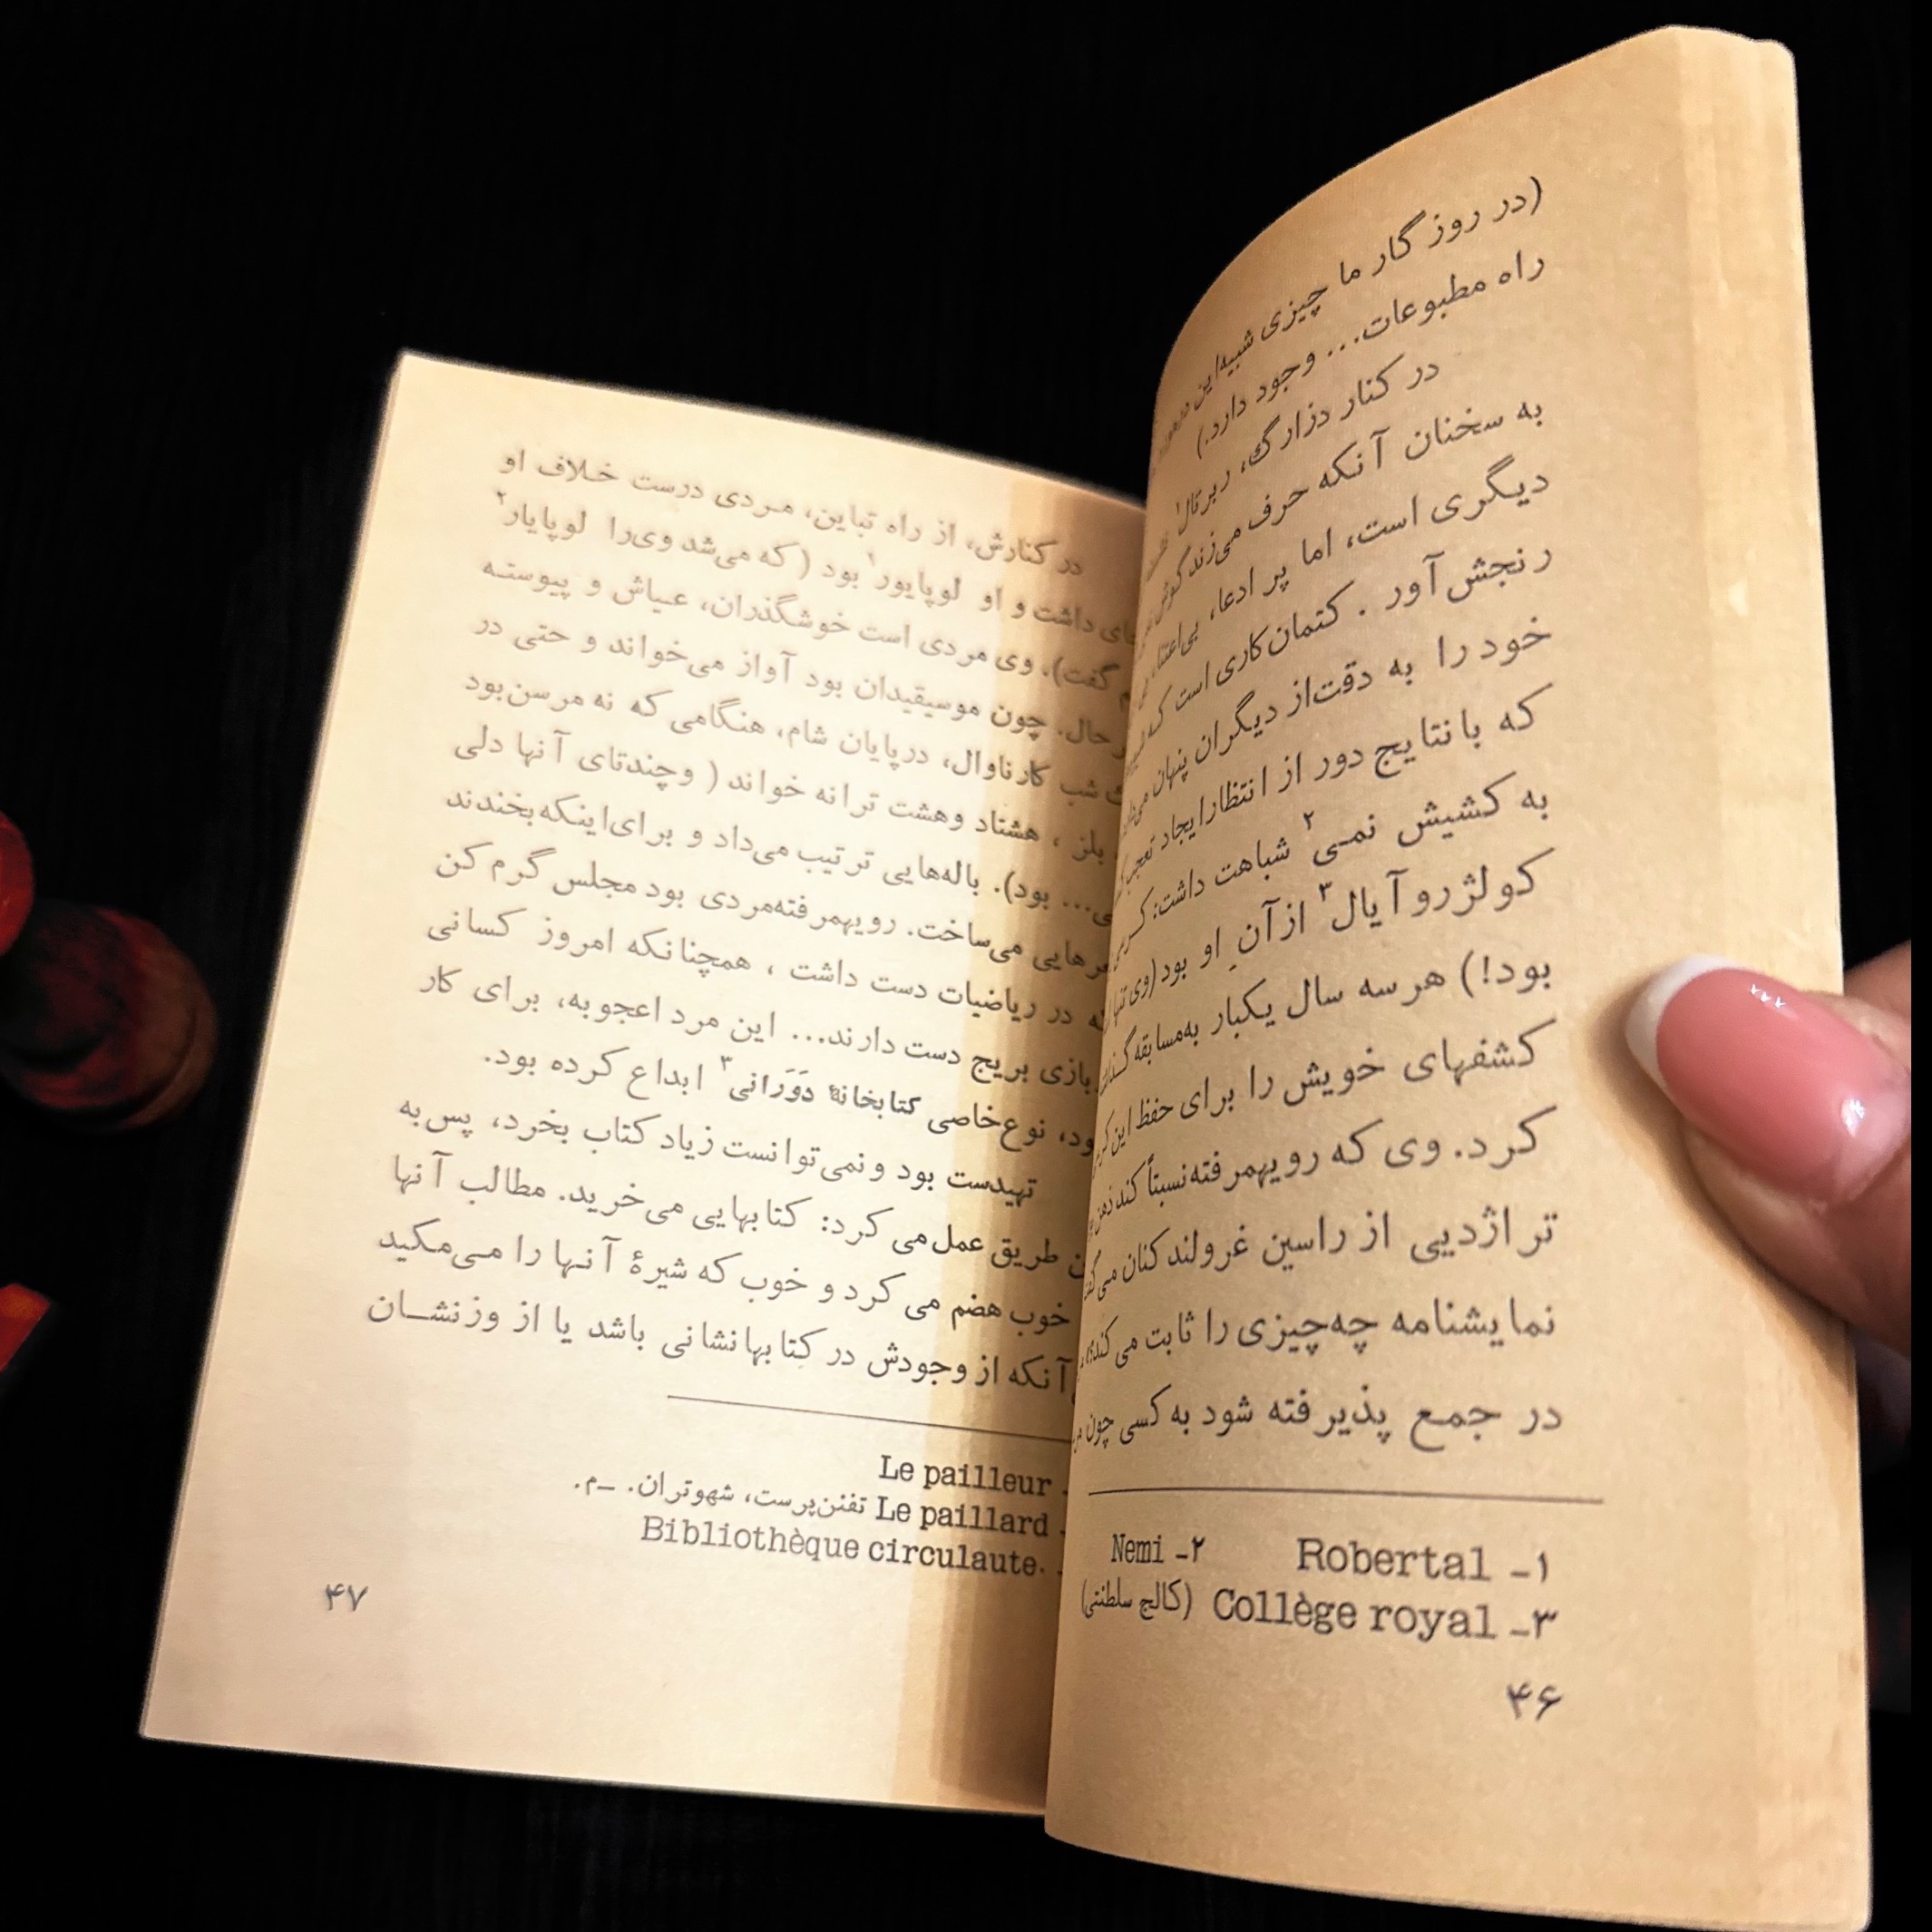 (در روزگار ما چیزی شبیه این
راه مطبوعات... وجود دارد.)
در کنار دزارگ، ربرتال۱
به سخنان آنکه حرف می‌زند گوش
دیگری است، اما پر ادعا، بی‌اعتنا،
رنجش‌آور . کتمان‌کاری است که
خود را به دقت از دیگران پنهان
که با نتایج دور از انتظار ایجاد تعجب
به کشیش نمی۲ شباهت داشت: کرسی
کولژروآیال۳ ازآنِ او بود (وی تنها
بود!) هر سه سال یکبار به‌مسابقه
کشفهای خویش را برای حفظ این
کرد. وی که رویهمرفته نسبتاً کند ذهن
تراژدیی از راسین غرولندکنان
نمایشنامه چه‌چیزی را ثابت می‌کند؟»
در جمع پذیرفته شود به کسی چون
۱ـ Robertal ۲ـ Nemi
۳ـ Collège royal (کالج سلطنتی)
۴۶
در کنارش، از راه تباین، مردی درست خلاف او
جای داشت و او لوپایور۱ بود (که می‌شد وی‌را لوپایار۲
گفت). وی مردی است خوشگذران، عیاش و پیوسته
حال. چون موسیقیدان بود آواز می‌خواند و حتی در
شب کارناوال، درپایان شام، هنگامی که نه مرسن‌بود
بلز ، هشتاد وهشت ترانه خواند ( وچندتای آنها دلی
... بود). باله‌هایی ترتیب می‌داد و برای‌اینکه‌بخندند
می‌ساخت. رویهمرفته‌مردی بود مجلس گرم کن
در ریاضیات دست داشت ، همچنانکه امروز کسانی
بازی بریج دست دارند... این مرد اعجوبه، برای کار
نوع‌خاصی کتابخانهٔ دَوَرانی۳ ابداع کرده بود.
تهیدست بود و نمی‌توانست زیاد کتاب بخرد، پس‌به
طریق عمل‌می کرد: کتابهایی می‌خرید. مطالب آنها
خوب هضم می کرد و خوب که شیرهٔ آنها را مـی‌مکید
آنکه از وجودش در کتابها نشانی باشد یا از وزنشــان
Le pailleur
Le paillard تفنن‌پرست، شهوتران. ــم.
Bibliothèque circulaute.
۴۷